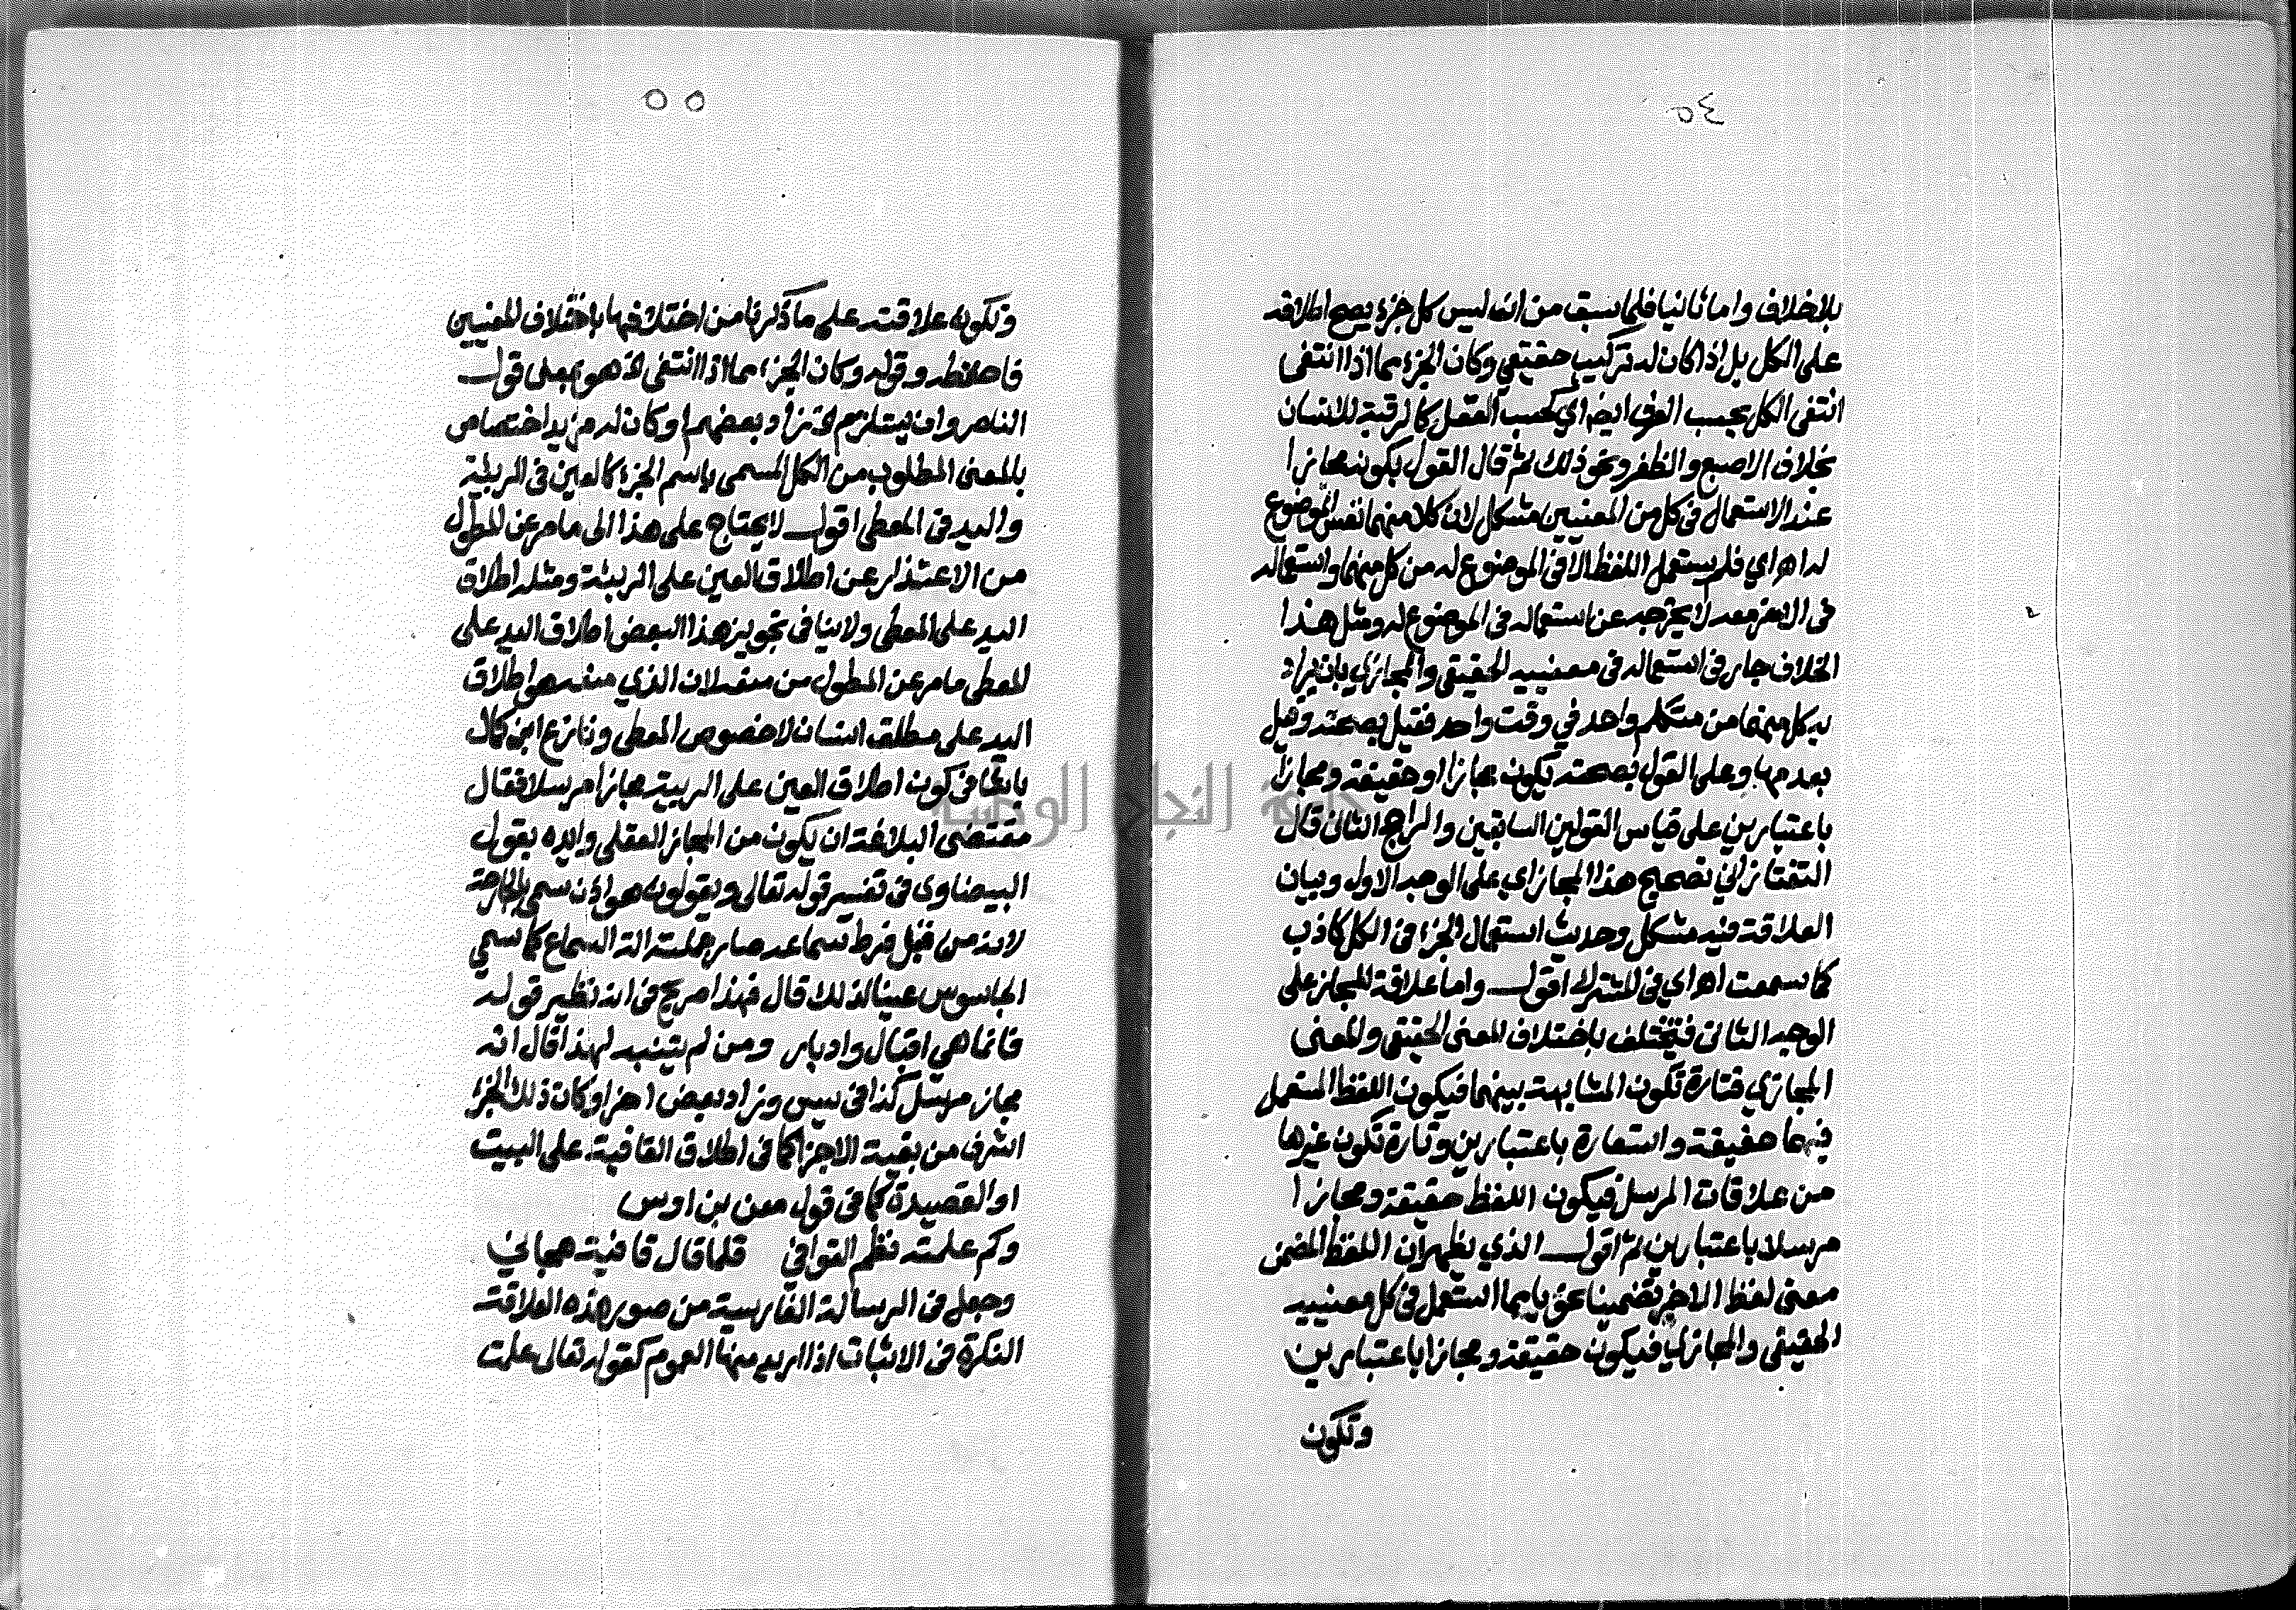 ٥٤
بلا خلاف واما ثانيا فلما سبق من انه ليس كل جزء يصح اطلاقه
على الكل بل اذا كان له تركيب حقيقي وكان الجزء مما اذا انتفى
انتفى الكل بحسب العرف ايضا اي كحسب العقل كالرقبة للانسان
بخلاف الاصبع والظفر ونحو ذلك ثم قال القول بكونه مجازا
عند الاستعمال في كل من المعنيين مشكل لان كلا منهما نفس الموضوع
له اهـ اي فلم يستعمل اللفظ الا في الموضوع له من كل منهما واستعماله
في الاخر معه لا يخرجه عن استعماله في الموضوع له ومثل هذا
الخلاف جار في استعماله في معنييه الحقيقي والمجازي بان يراد
به كل منهما من متكلم واحد في وقت واحد فقيل بصحته وقيل
بعدمها وعلى القول بصحته يكون مجازا او حقيقة ومجازا
باعتبارين على قياس القولين السابقين والراجح الثاني قال
التفتازاني تصحيح هذا المجاز اي على الوجه الاول وبيان
العلاقة فيه مشكل وحديث استعمال الجزء في الكل كاذب
كما سمعت اهـ اي في المشترك اقول واما علاقة المجاز على
الوجه الثاني فتختلف باختلاف المعنى الحقيقي والمعنى
المجازي فتارة تكون المشابهة بينهما فيكون اللفظ المستعمل
فيهما حقيقة واستعارة باعتبارين وتارة تكون غيرها
من علاقات المرسل فيكون اللفظ حقيقة ومجازا
مرسلا باعتبارين ثم اقول الذي يظهر ان اللفظ المضمن
معنى لفظ الاخر تضمينا نحويا مما استعمل في كل معنييه
الحقيقي والمجازي فيكون حقيقة ومجازا باعتبارين
وتكون
٥٥
وتكون علاقته على ما ذكرنا من اختلافها باختلاف المعنيين
فاحفظه وقوله وكان الجزء مما اذا انتفى الخ هو بمعنى قول
الناصر وان يستلزم الخ وزاد بعضهم او كان له مزيد اختصاص
بالمعنى المطلوب من الكل المسمى باسم الجزء كالعين في الربيئة
واليد في المعطى اقول لا يحتاج على هذا الى ما مر عن المطول
من الاعتذار عن اطلاق العين على الربيئة ومثله اطلاق
اليد على المعطى ولا ينافي تجويز هذا البعض اطلاق اليد على
المعطى ما مر عن المطول من منعه لان الذي منعه هو اطلاق
اليد على مطلق انسان لا خصوص المعطى ونازع ابن كمال
باشا في كون اطلاق العين على الربيئة مجازا مرسلا فقال
مقتضى البلاغة ان يكون من المجاز العقلي وايده بقول
البيضاوي في تفسير قوله تعالى ويقولون هو اذن سمي بالجارحة
لانه من فرط سماعه صار جملته الة السماع كما سمي
الجاسوس عينا لذلك قال فهذا صريح في انه نظير قوله
فانما هي اقبال وادبار ومن لم يتنبه لهذا قال انه
مجاز مرسل كذا في يس وزاد بعض اخر او كان ذلك الجزء
اشرف من بقية الاجزا كما في اطلاق القافية على البيت
او القصيدة كما في قول معن بن اوس
وكم علمته نظم القوافي فلما قال قافية هجاني
وجعل في الرسالة الفارسية من صور هذه العلاقة
النكرة في الاثبات اذا اريد منها العموم كقوله تعالى علمت
جامعة النجاح الوطنية